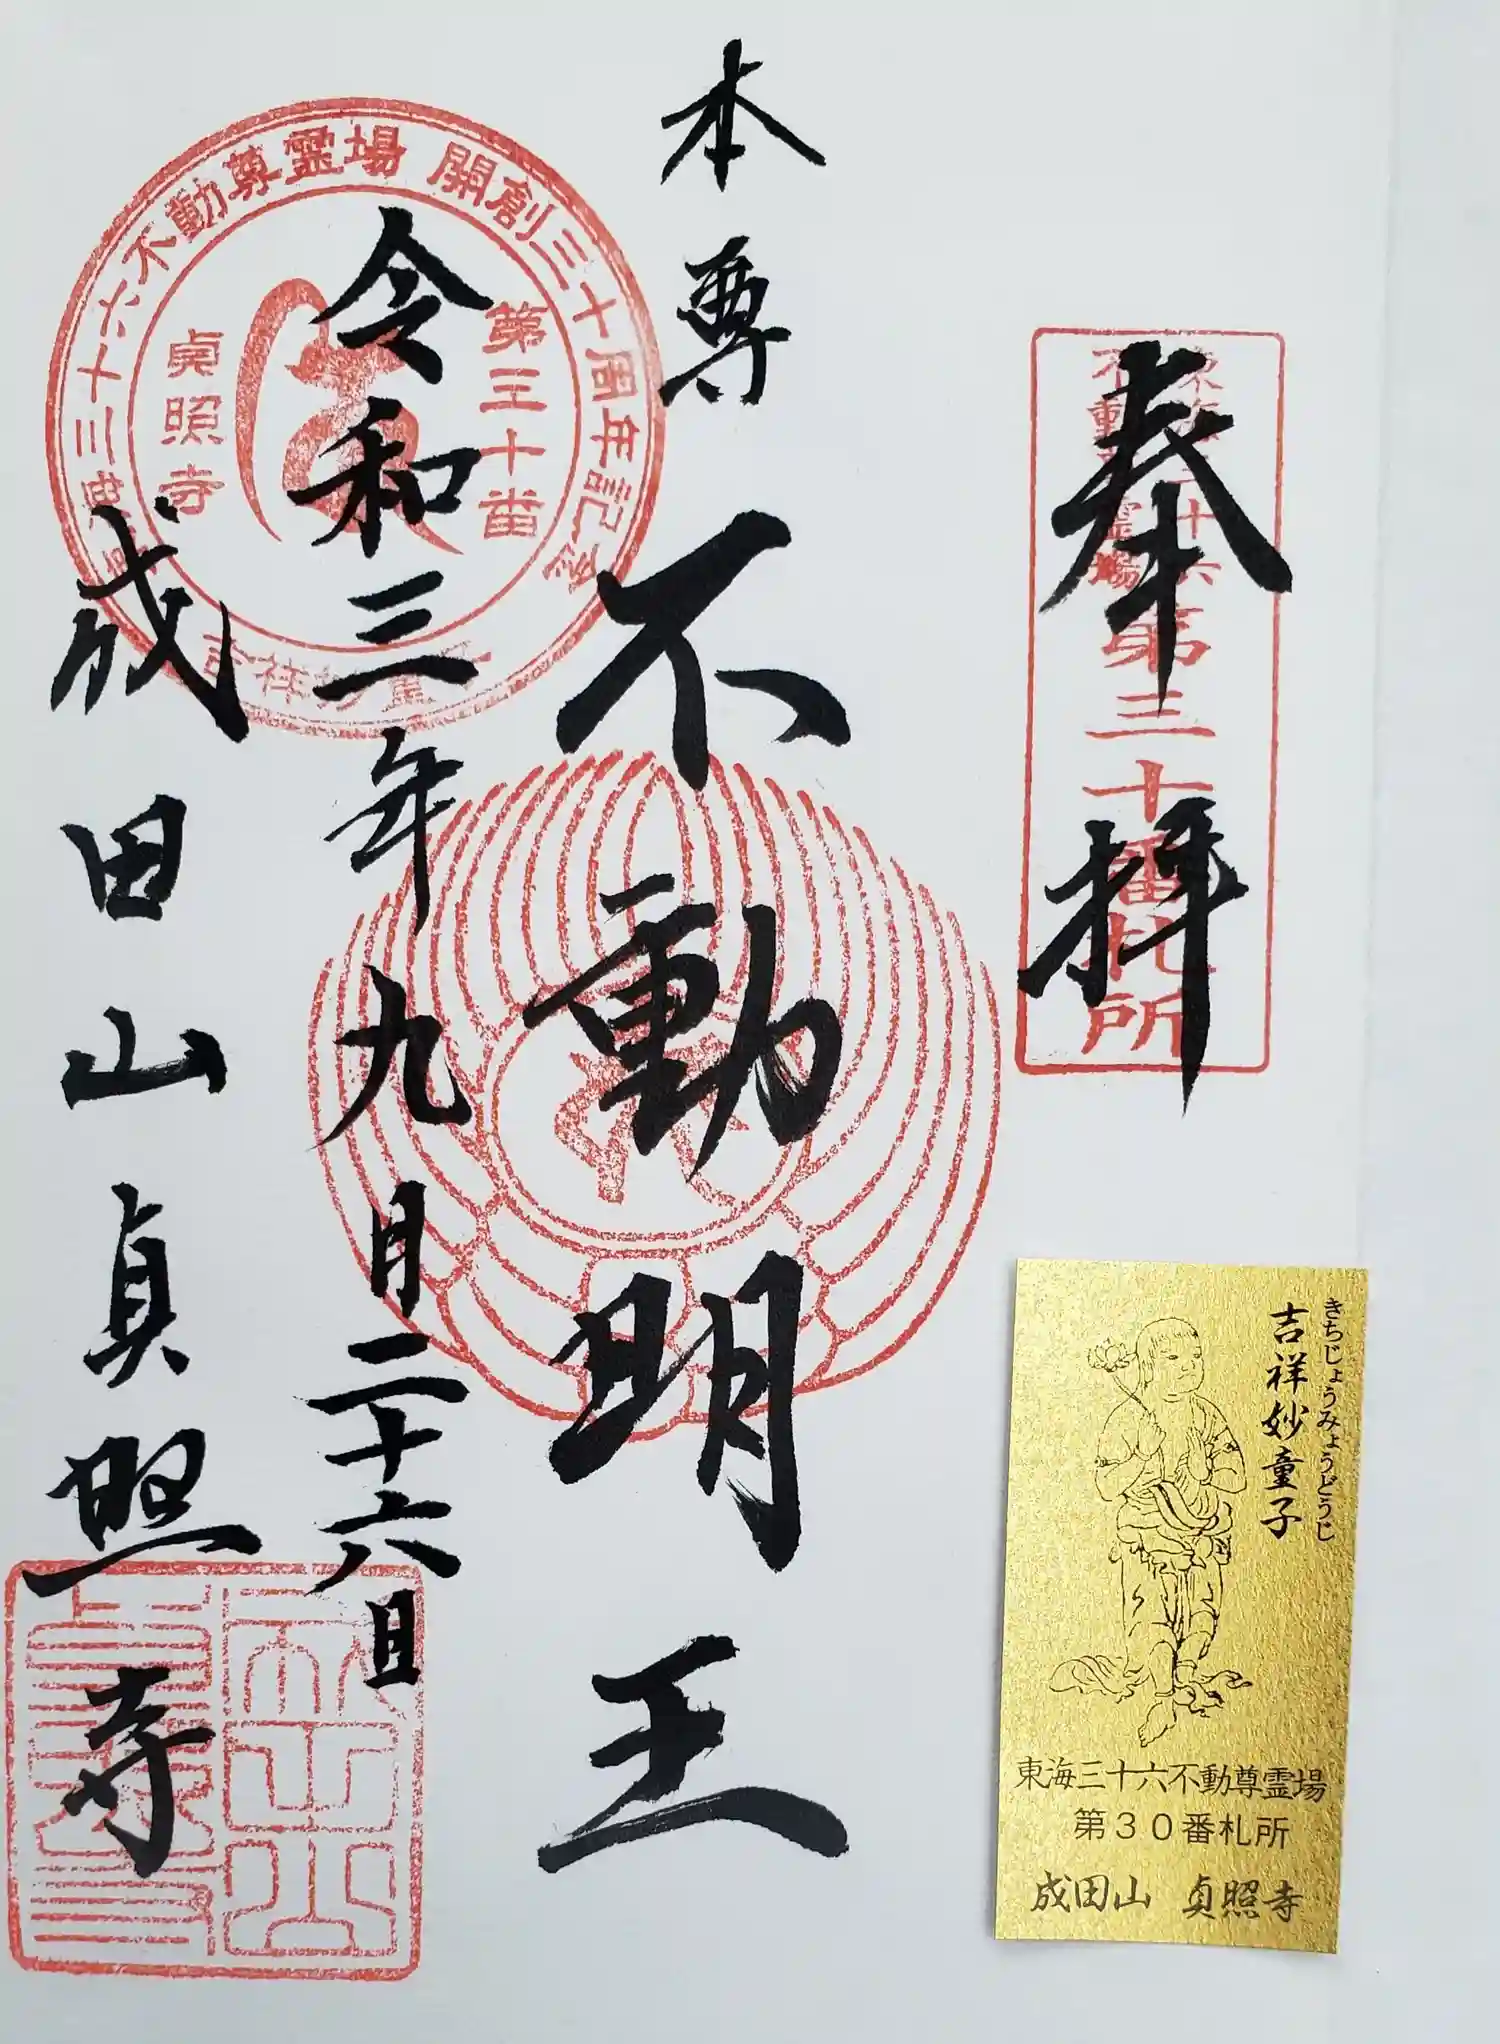 奉拝
東海三十六
不動尊霊場
第三十番札所
本尊
不動明王
令和三年九月二十六日
成田山貞照寺
東海三十六不動尊霊場 開創三十周年記念
第三十番
貞照寺
吉祥妙童子
きちじょうみょうどうじ
吉祥妙童子
東海三十六不動尊霊場
第30番札所
成田山 貞照寺